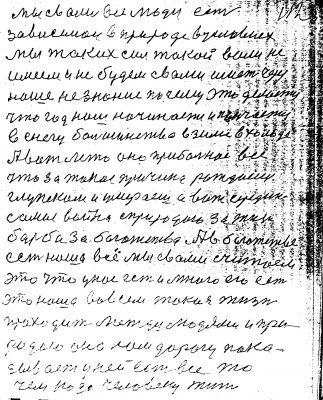 мы свами все люди ест
зависимои в природе в условиех
мы таких сил такой воли не
имеем и не будем свами иметь еду
наше незнание почему это делается
что год наш начинается и кончается
в снегу большинство в зиме в холоде
А вот лето оно прибольное все
что за такая причина рождения
глупеком и умираем а вот среди
самая война с природою за жизн
барба за богатство А в богатстве
ест наша всё мы свами считаем
это что у нас ест и много его ест
это наша вовсем такая жизн
проходит между людями и при
родаю она нам дорогу пока
зывает у ней ест все то
чем надо человеку жит